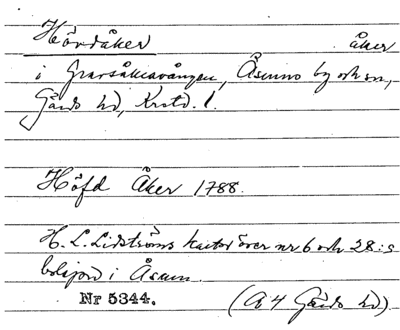 Hövdåker åker
i Gransåkravången, Åsums by och sn,
Gärds hd, Krstd. l.
Höfd Åker 1788.
H. L. Lidströms kartor över nr 6 och 28:s
bolsjord i Åsum.
Nr 5344. (A 4 Gärds hd)